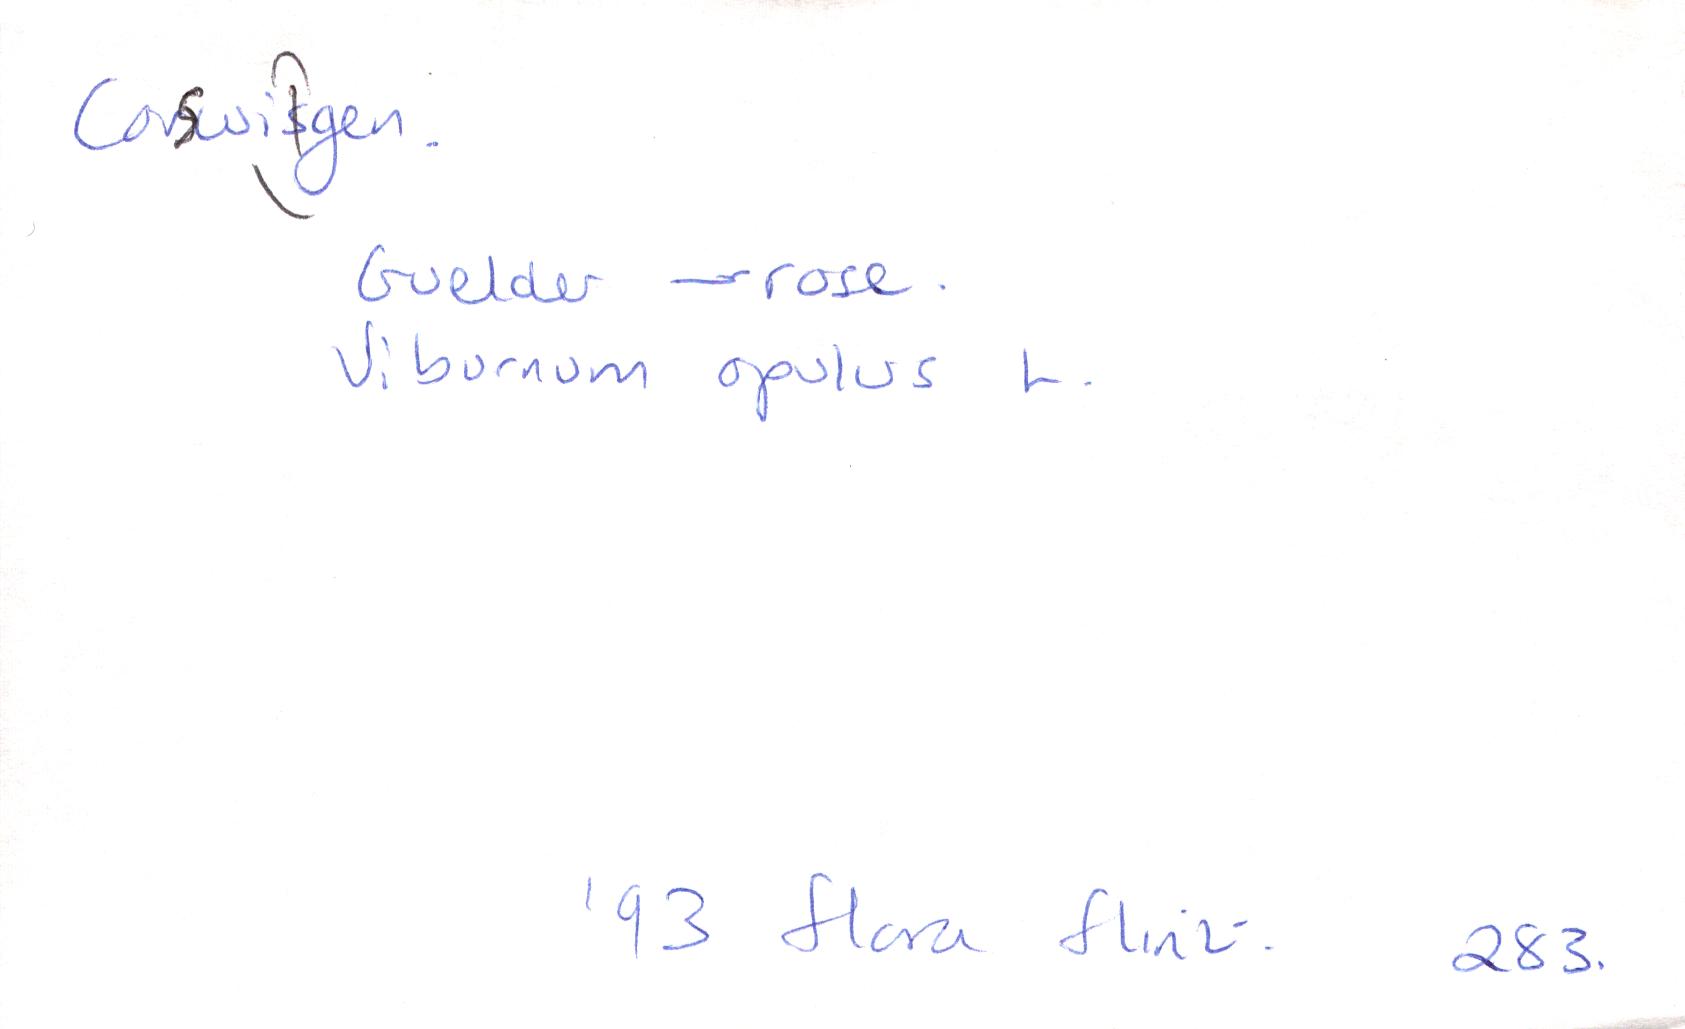 Corswigen.
Guelder - rose.
Viburnum opulus L.
'93 flora flint. 283.